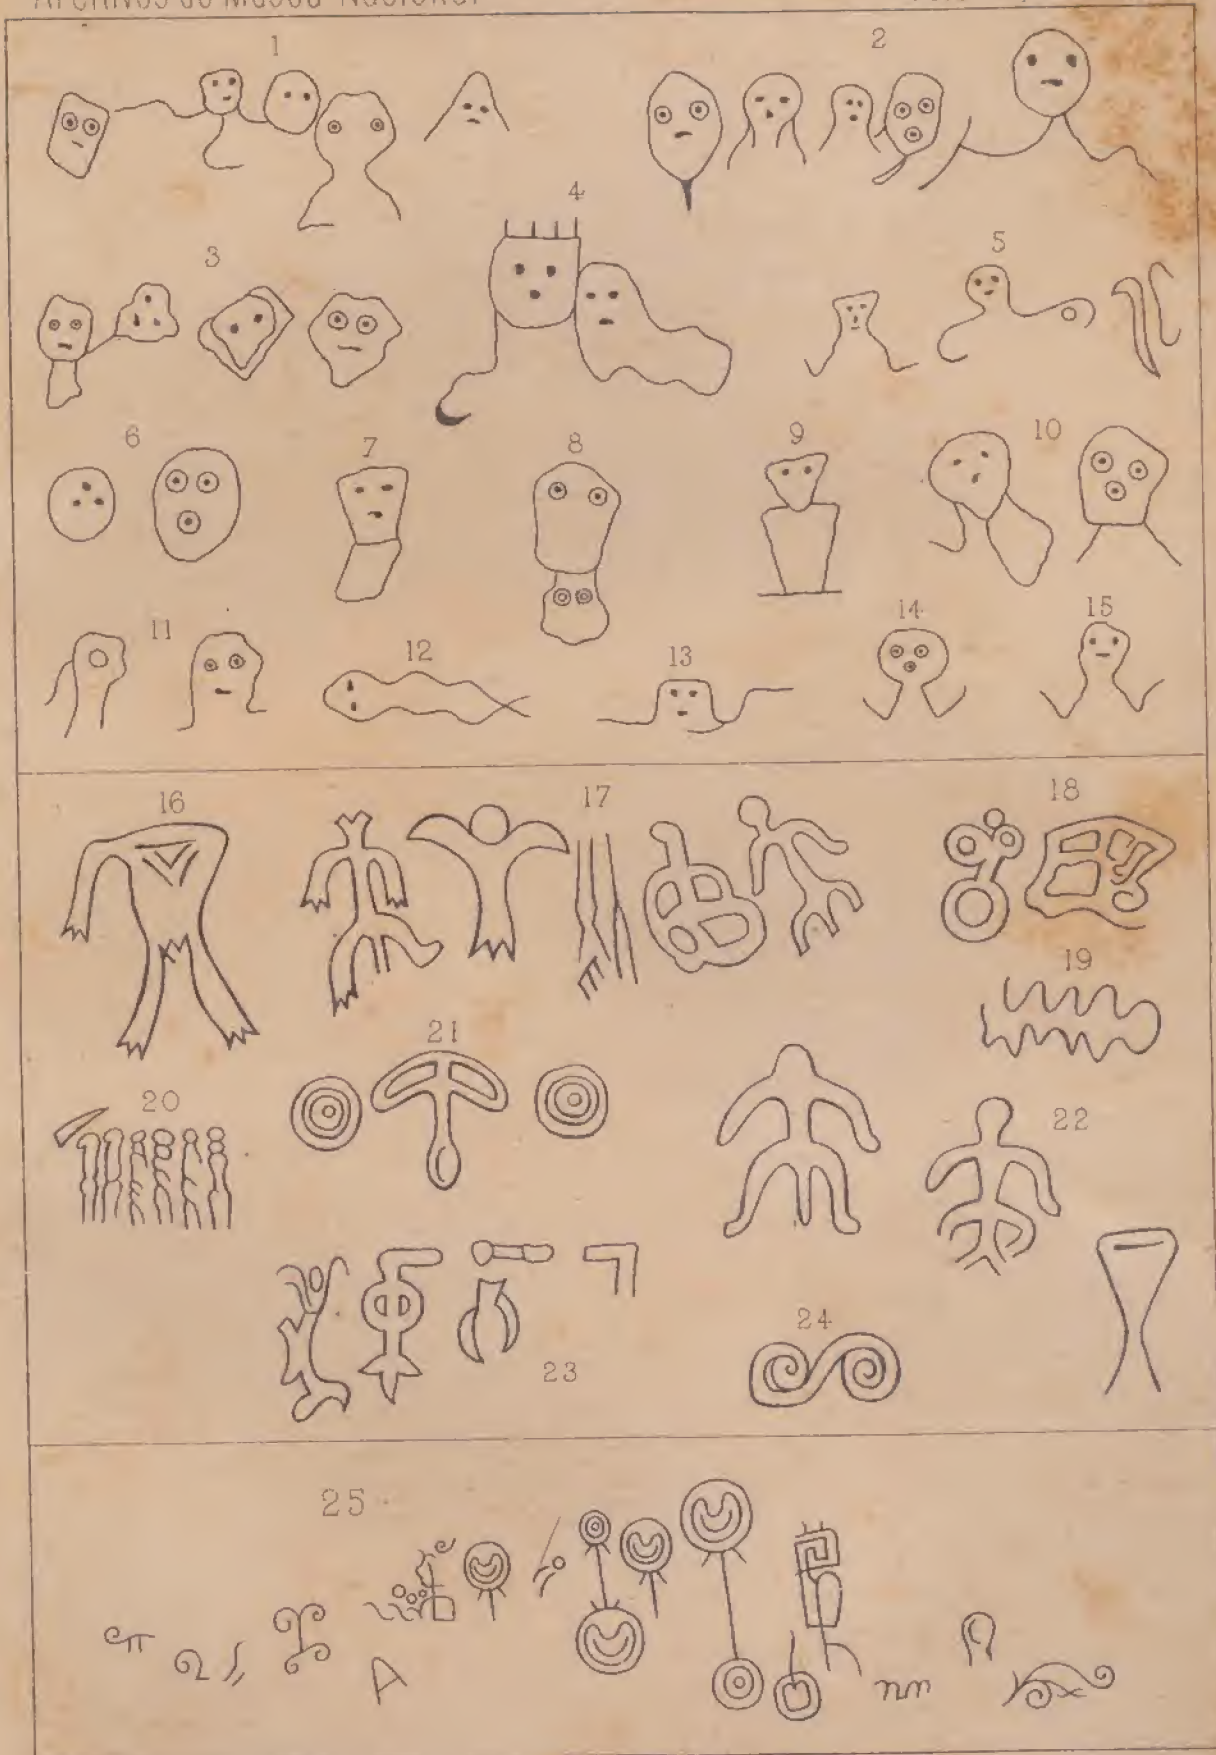 Archivos do Museu Nacional
1
2
3
4
5
6
7
8
9
10
11
12
13
14
15
16
17
18
19
20
21
22
23
24
25